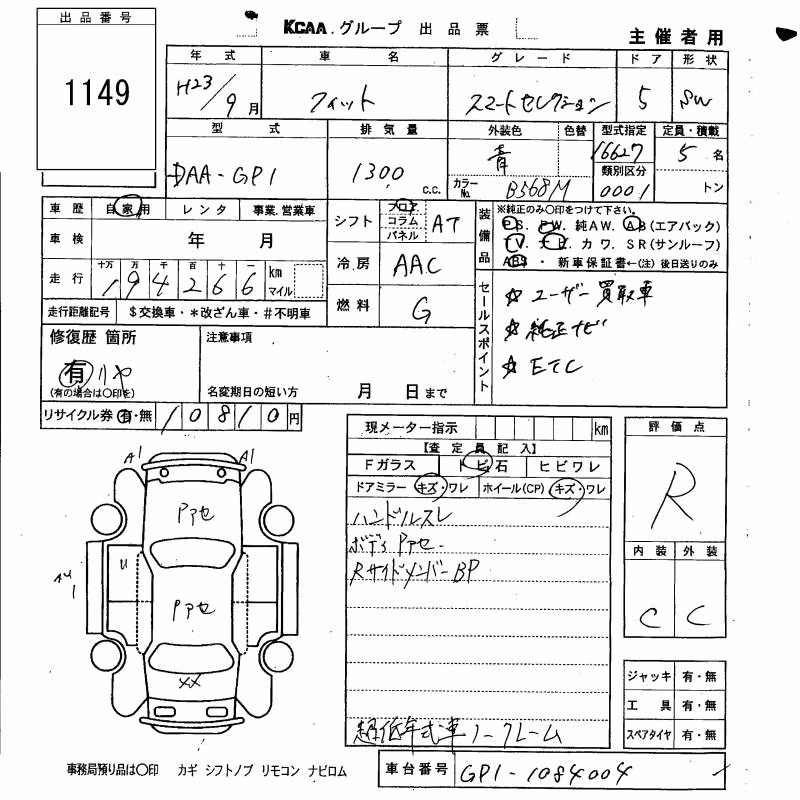 出品番号
1149
KCAA.グループ 出品票
主催者用
年式 車名 グレード ドア 形状
H23/9月 フィット スマートセレクション 5 SW
型式 排気量 外装色 色替 型式指定 定員・積載
DAA-GP1 1300 c.c. 青 16627 5名
カラーNo. B568M 類別区分 0001 トン
車歴 自家用 レンタ 事業.営業車
車検 年 月
走行 十万 万 千 百 十 一 km マイル
194266
走行距離記号 $交換車・*改ざん車・#不明車
シフト フロア コラム パネル AT
冷房 AAC
燃料 G
装備品 ※純正のみ○印をつけて下さい。
PS. PW. 純AW. AB(エアバック)
TV. ナビ. カワ. SR(サンルーフ)
ABS・新車保証書←(注)後日送りのみ
セールスポイント
☆ ユーザー買取車
☆ 純正ナビ
☆ ETC
修復歴 箇所
有 リヤ
(有の場合は○印を)
注意事項
名変期日の短い方 月 日まで
リサイクル券 有・無 10810円
現メーター指示 km
【査定員記入】
Fガラス トビ石 ヒビワレ
ドアミラー キズ・ワレ ホイール(CP) キズ・ワレ
ハンドルスレ
ボディPアセ
RサイドメンバーBP
超低年式車ノークレーム
評価点
R
内装 外装
C C
ジャッキ 有・無
工具 有・無
スペアタイヤ 有・無
A1 A1
Pアセ
U
Pアセ
XX
事務局預り品は○印 カギ シフトノブ リモコン ナビロム
車台番号 GP1-1084004